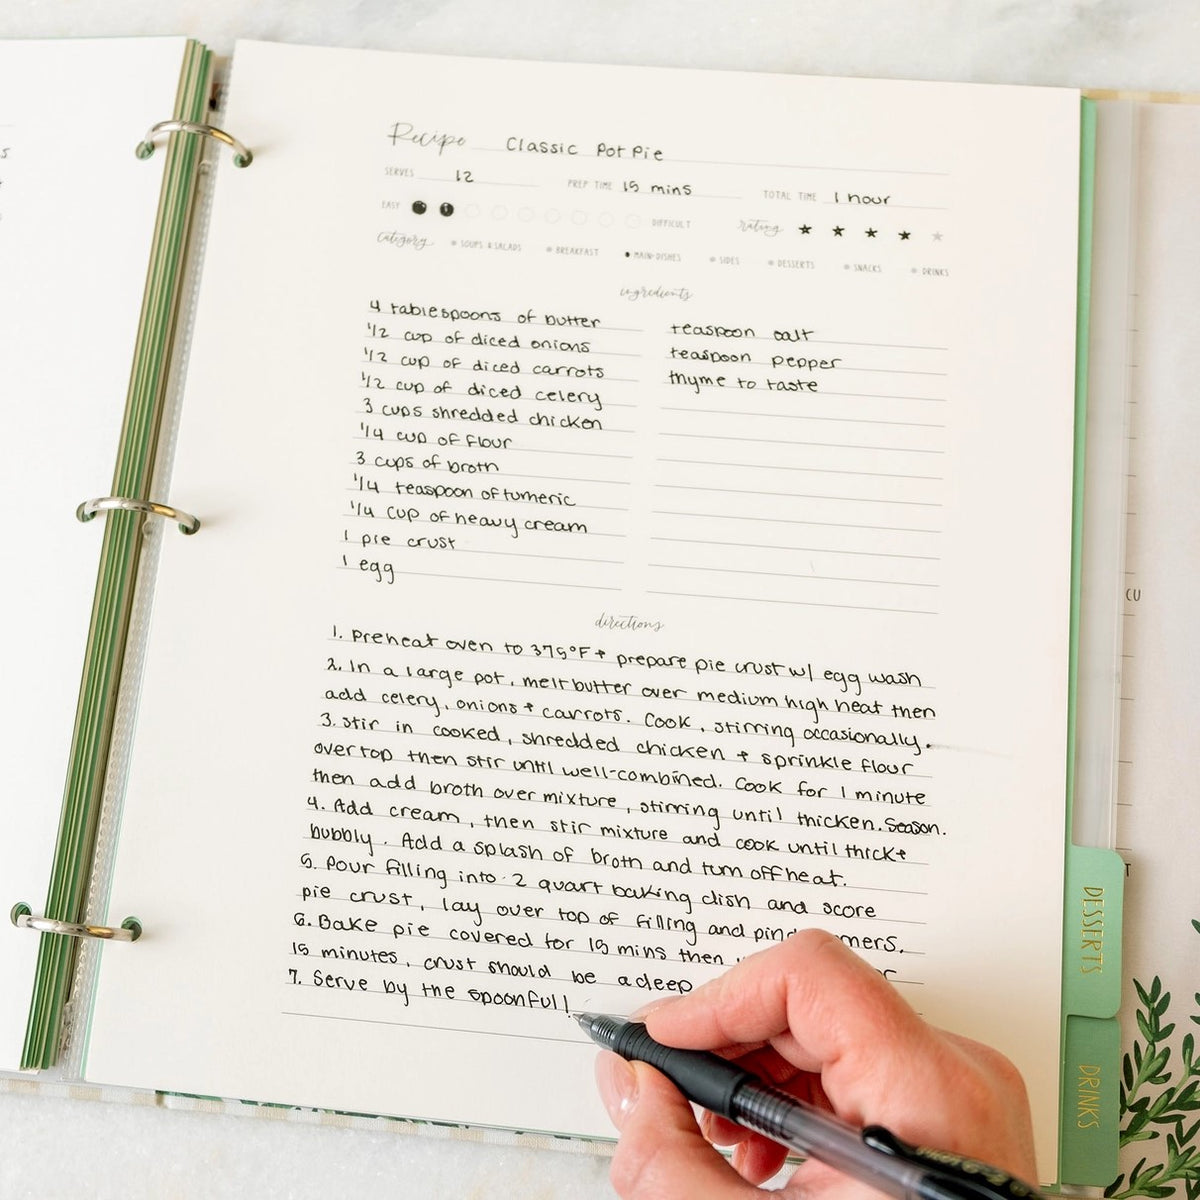 Recipe Classic Pot Pie
SERVES 12 PREP TIME 15 mins TOTAL TIME 1 hour
EASY DIFFICULT rating
Category SOUPS & SALADS BREAKFAST MAIN DISHES SIDES DESSERTS SNACKS DRINKS
ingredients
4 tablespoons of butter
1/2 cup of diced onions
1/2 cup of diced carrots
1/2 cup of diced celery
3 cups shredded chicken
1/4 cup of flour
3 cups of broth
1/4 teaspoon of tumeric
1/4 cup of heavy cream
1 pie crust
1 egg
teaspoon salt
teaspoon pepper
thyme to taste
directions
1. Preheat oven to 375°F + prepare pie crust w/ egg wash
2. In a large pot, melt butter over medium high heat then
add celery, onions + carrots. Cook, stirring occasionally.
3. Stir in cooked, shredded chicken + sprinkle flour
over top then stir until well-combined. Cook for 1 minute
then add broth over mixture, stirring until thicken. Season.
4. Add cream, then stir mixture and cook until thick +
bubbly. Add a splash of broth and turn off heat.
5. Pour filling into 2 quart baking dish and score
pie crust, lay over top of filling and
6. Bake pie covered for 15 mins then
15 minutes, crust should be a deep
7. Serve by the spoonful!
DESSERTS
DRINKS
CU